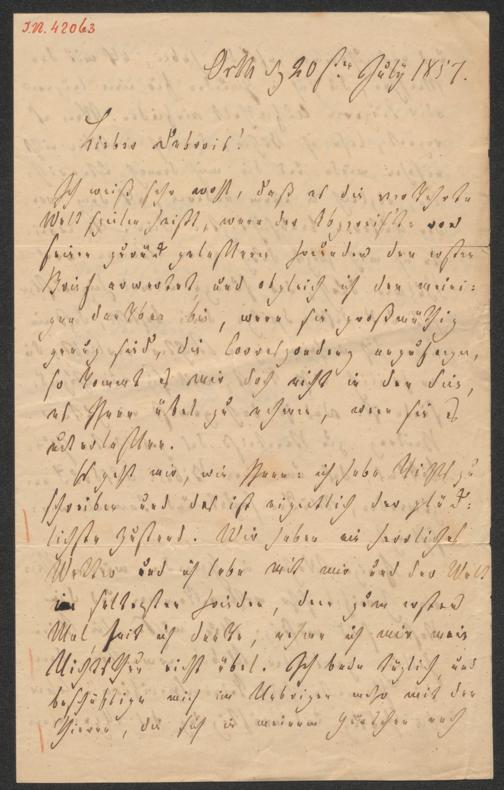 I.N. 42063
Orth d 20sten July 1857.
Lieber Debrois!
Ich weiß sehr wohl, daß es die verkehrte
Welt spielen heißt, wenn der Abgereiste von
seinen zurück gelassenen Freunden den ersten
Brief erwartet, und obgleich ich der meini-
gen dankbar bin, wenn sie großmüthig
genug sind, die Correspondenz anzufangen,
so kommt es mir doch nicht in den Sinn,
es Ihnen übel zu nehmen, wenn Sie es
unterlassen.
Es geht mir, wie Ihnen: ich habe Nichts zu
schreiben und das ist eigentlich der glück-
lichste Zustand. Wir haben ein herrliches
Wetter und ich lebe mit mir und der Welt
im seltensten Frieden, denn zum ersten
Mal, seit ich denke, nehme ich mir mein
Nichtsthun nicht übel. Ich bade täglich und
beschäftige mich im Uebrigen mehr mit den
Thieren, die sich in meinem Gärtchen noch